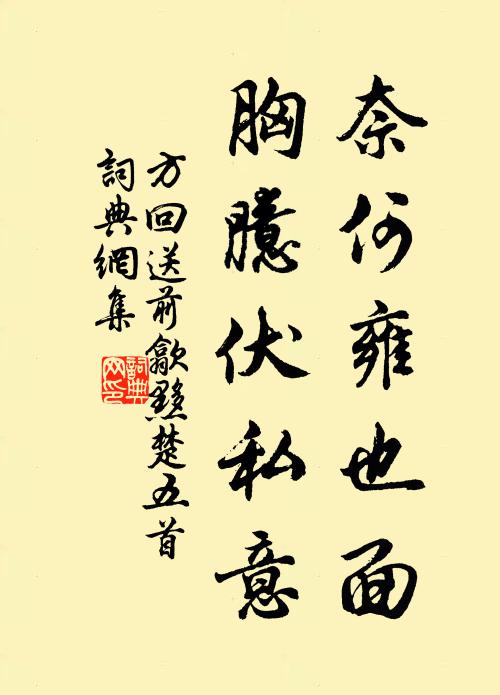 奈何雍也面
胸臆伏私意
方回送前歙黟楚五首
詞典網集
詞典网印